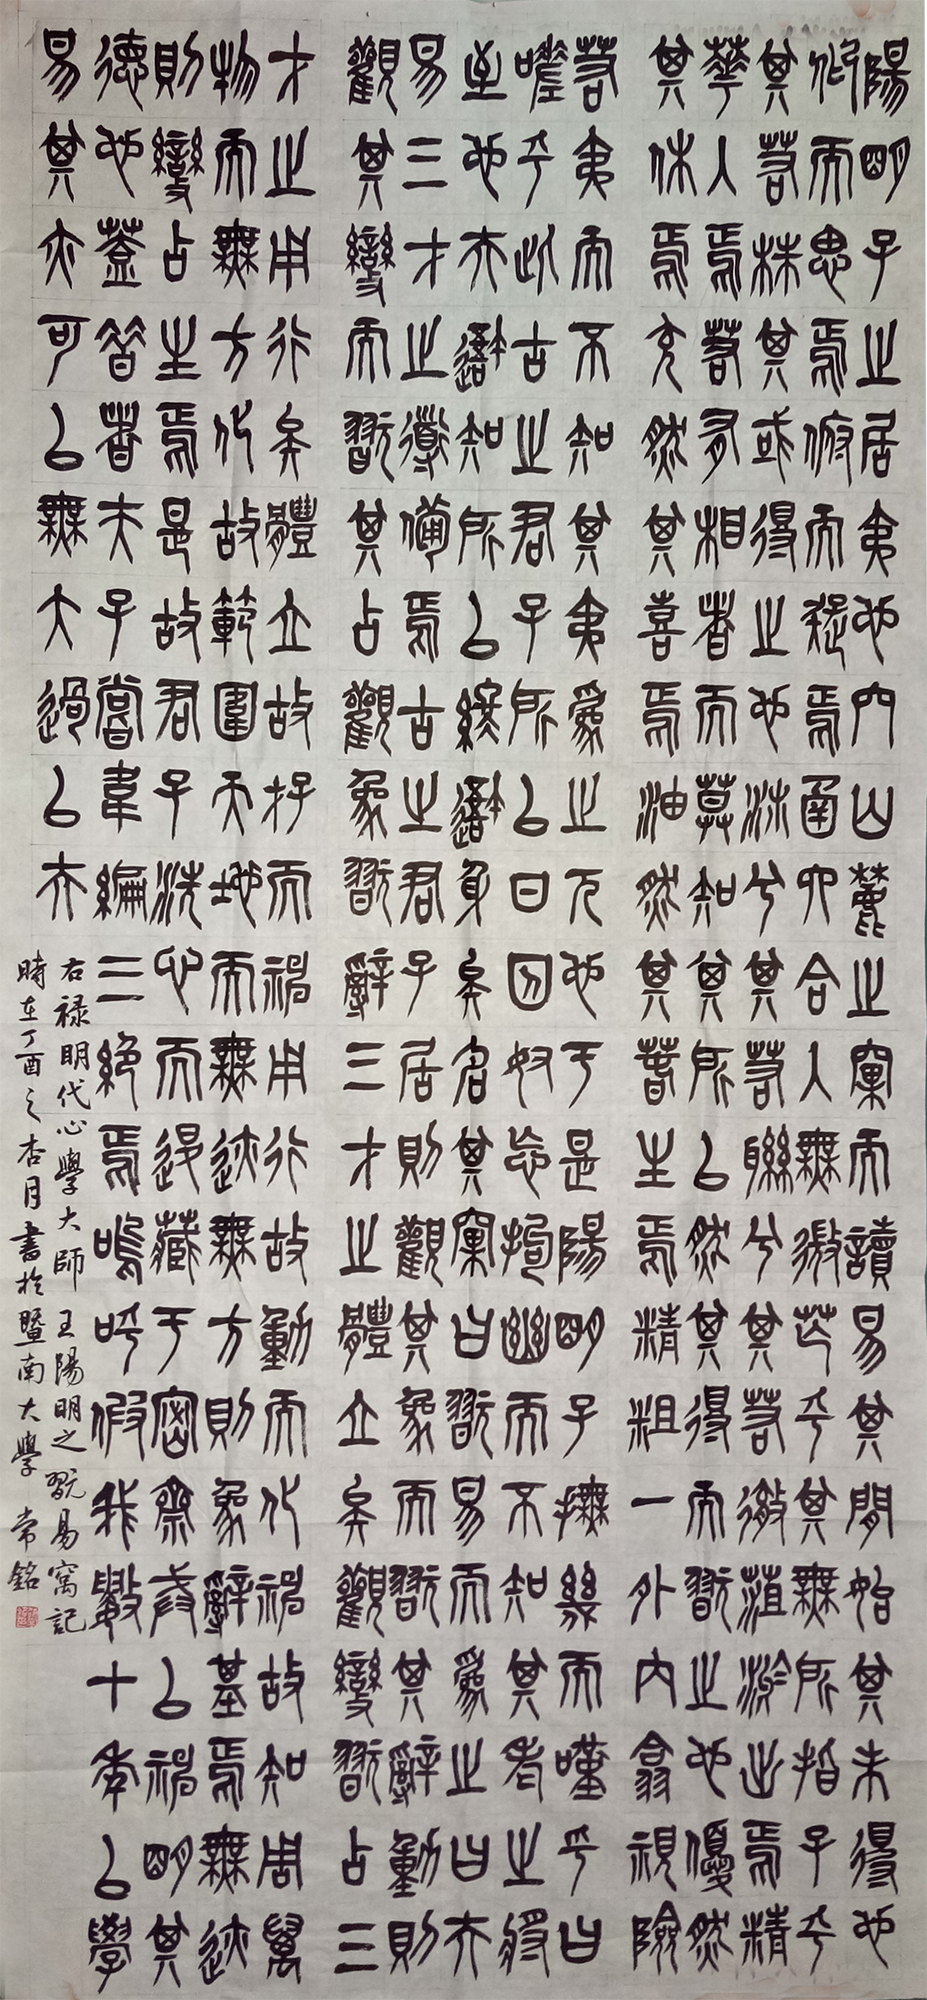 陽明子之居夷也穴山麓之窩而讀易其間始其未得也
仰而思焉俯而疑焉函六合入無微茫乎其無所指孑乎
其若株其或得之也沛兮其若聯兮其若徹菹淤出焉精
華人焉若有相者而莫知其所以然其得而翫之也優然
其休焉充然其喜焉油然其春生焉精粗一外內翕視險
若夷而不知其夷為之厄也于是陽明子撫而嘆乎曰
嗟乎此古之君子所以甘囚奴忘拘幽而不知其老之將
至也夫吾知所以終吾身矣名其窩曰翫易而為之曰夫
易三才之道備焉古之君子居則觀其象而翫其辭動則
觀其變而翫其占觀象翫辭三才之體立矣觀變翫占三
才之用行矣體立故存而神用行故動而化神故知周萬
物而無方化故範圍天地而無迹無方則象辭基焉無迹
則變占生焉是故君子洗心而退藏于密齋戒以神明其
德也蓋昔者夫子嘗韋編三絕焉嗚呼假我數十年以學
易其亦可以無大過以夫
右禄明代心學大師王陽明之翫易窩記
時在丁酉之杏月書於暨南大學 常銘